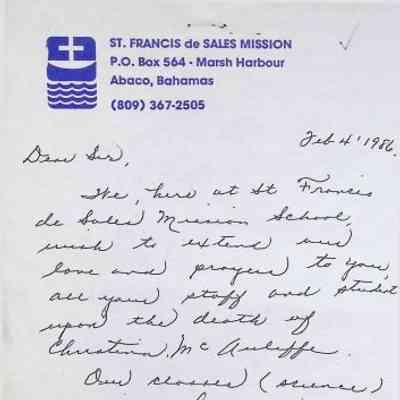 ST. FRANCIS de SALES MISSION
P.O. Box 564 - Marsh Harbour
Abaco, Bahamas
(809) 367-2505
Feb 4' 1986.
Dear Sir,
We, here at St Francis
de Sales Mission School,
wish to extend our
love and prayers to you,
all your staff and student
upon the death of
Christina McAuliffe.
Our classes (science)